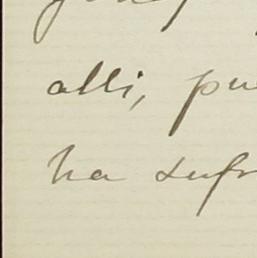 alli, pu
ha sufr